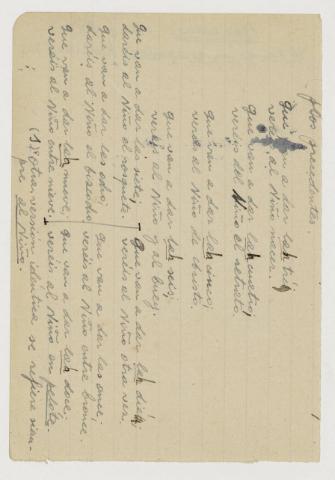 (los precedentes
Que van a dar las tres,
veréis al Niño nacer.
Que van a dar las cuatro,
veréis del Niño el retrato.
Que van a dar las cinco,
veréis al Niño de Cristo.
Que van a dar las seis,
veréis al Niño y al buey.
Que van a dar las siete,
daréis al Niño el roquete.
Que van a dar las ocho,
daréis al Niño el bizcocho.
Que van a dar las nueve,
veréis al Niño entre nieve.
Que van a dar las diez,
veréis al Niño otra vez.
Que van a dar las once,
veréis al Niño entre bronce.
Que van a dar las doce,
veréis al Niño en pelote.
(1) Otra versión idéntica se refiere siem-
pre al Niño.